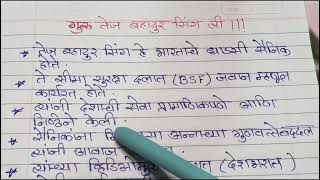 गुरू तेज बहादुर सिंग जी !!!
* तेज बहादुर सिंग हे भारताचे धाडसी सैनिक
होते.
* ते सीमा सुरक्षा दलात (BSF) जवान म्हणून
कार्यरत होते.
* त्यांनी देशाची सेवा प्रामाणिकपणे आणि
निष्ठेने केली.
* सैनिकांना अन्नाच्या गुणवत्तेबद्दल
त्यांनी आवाज
* त्यांच्या व्हिडिओमुळे (देशभरात)